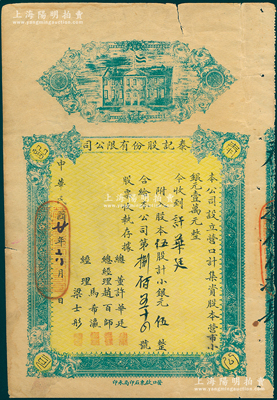 上海阳明拍卖
泰記股份有限公司
本公司設立營口計集資股本營市小
銀元壹萬元整
今收到許華廷
附股本伍股計小銀元伍整
合給本公司第捌佰五十四號
股票收執存據
總董許華廷
總經理趙百師
經理馬希瀛
梁士彤
中華民國廿年六月日
上海阳明拍卖